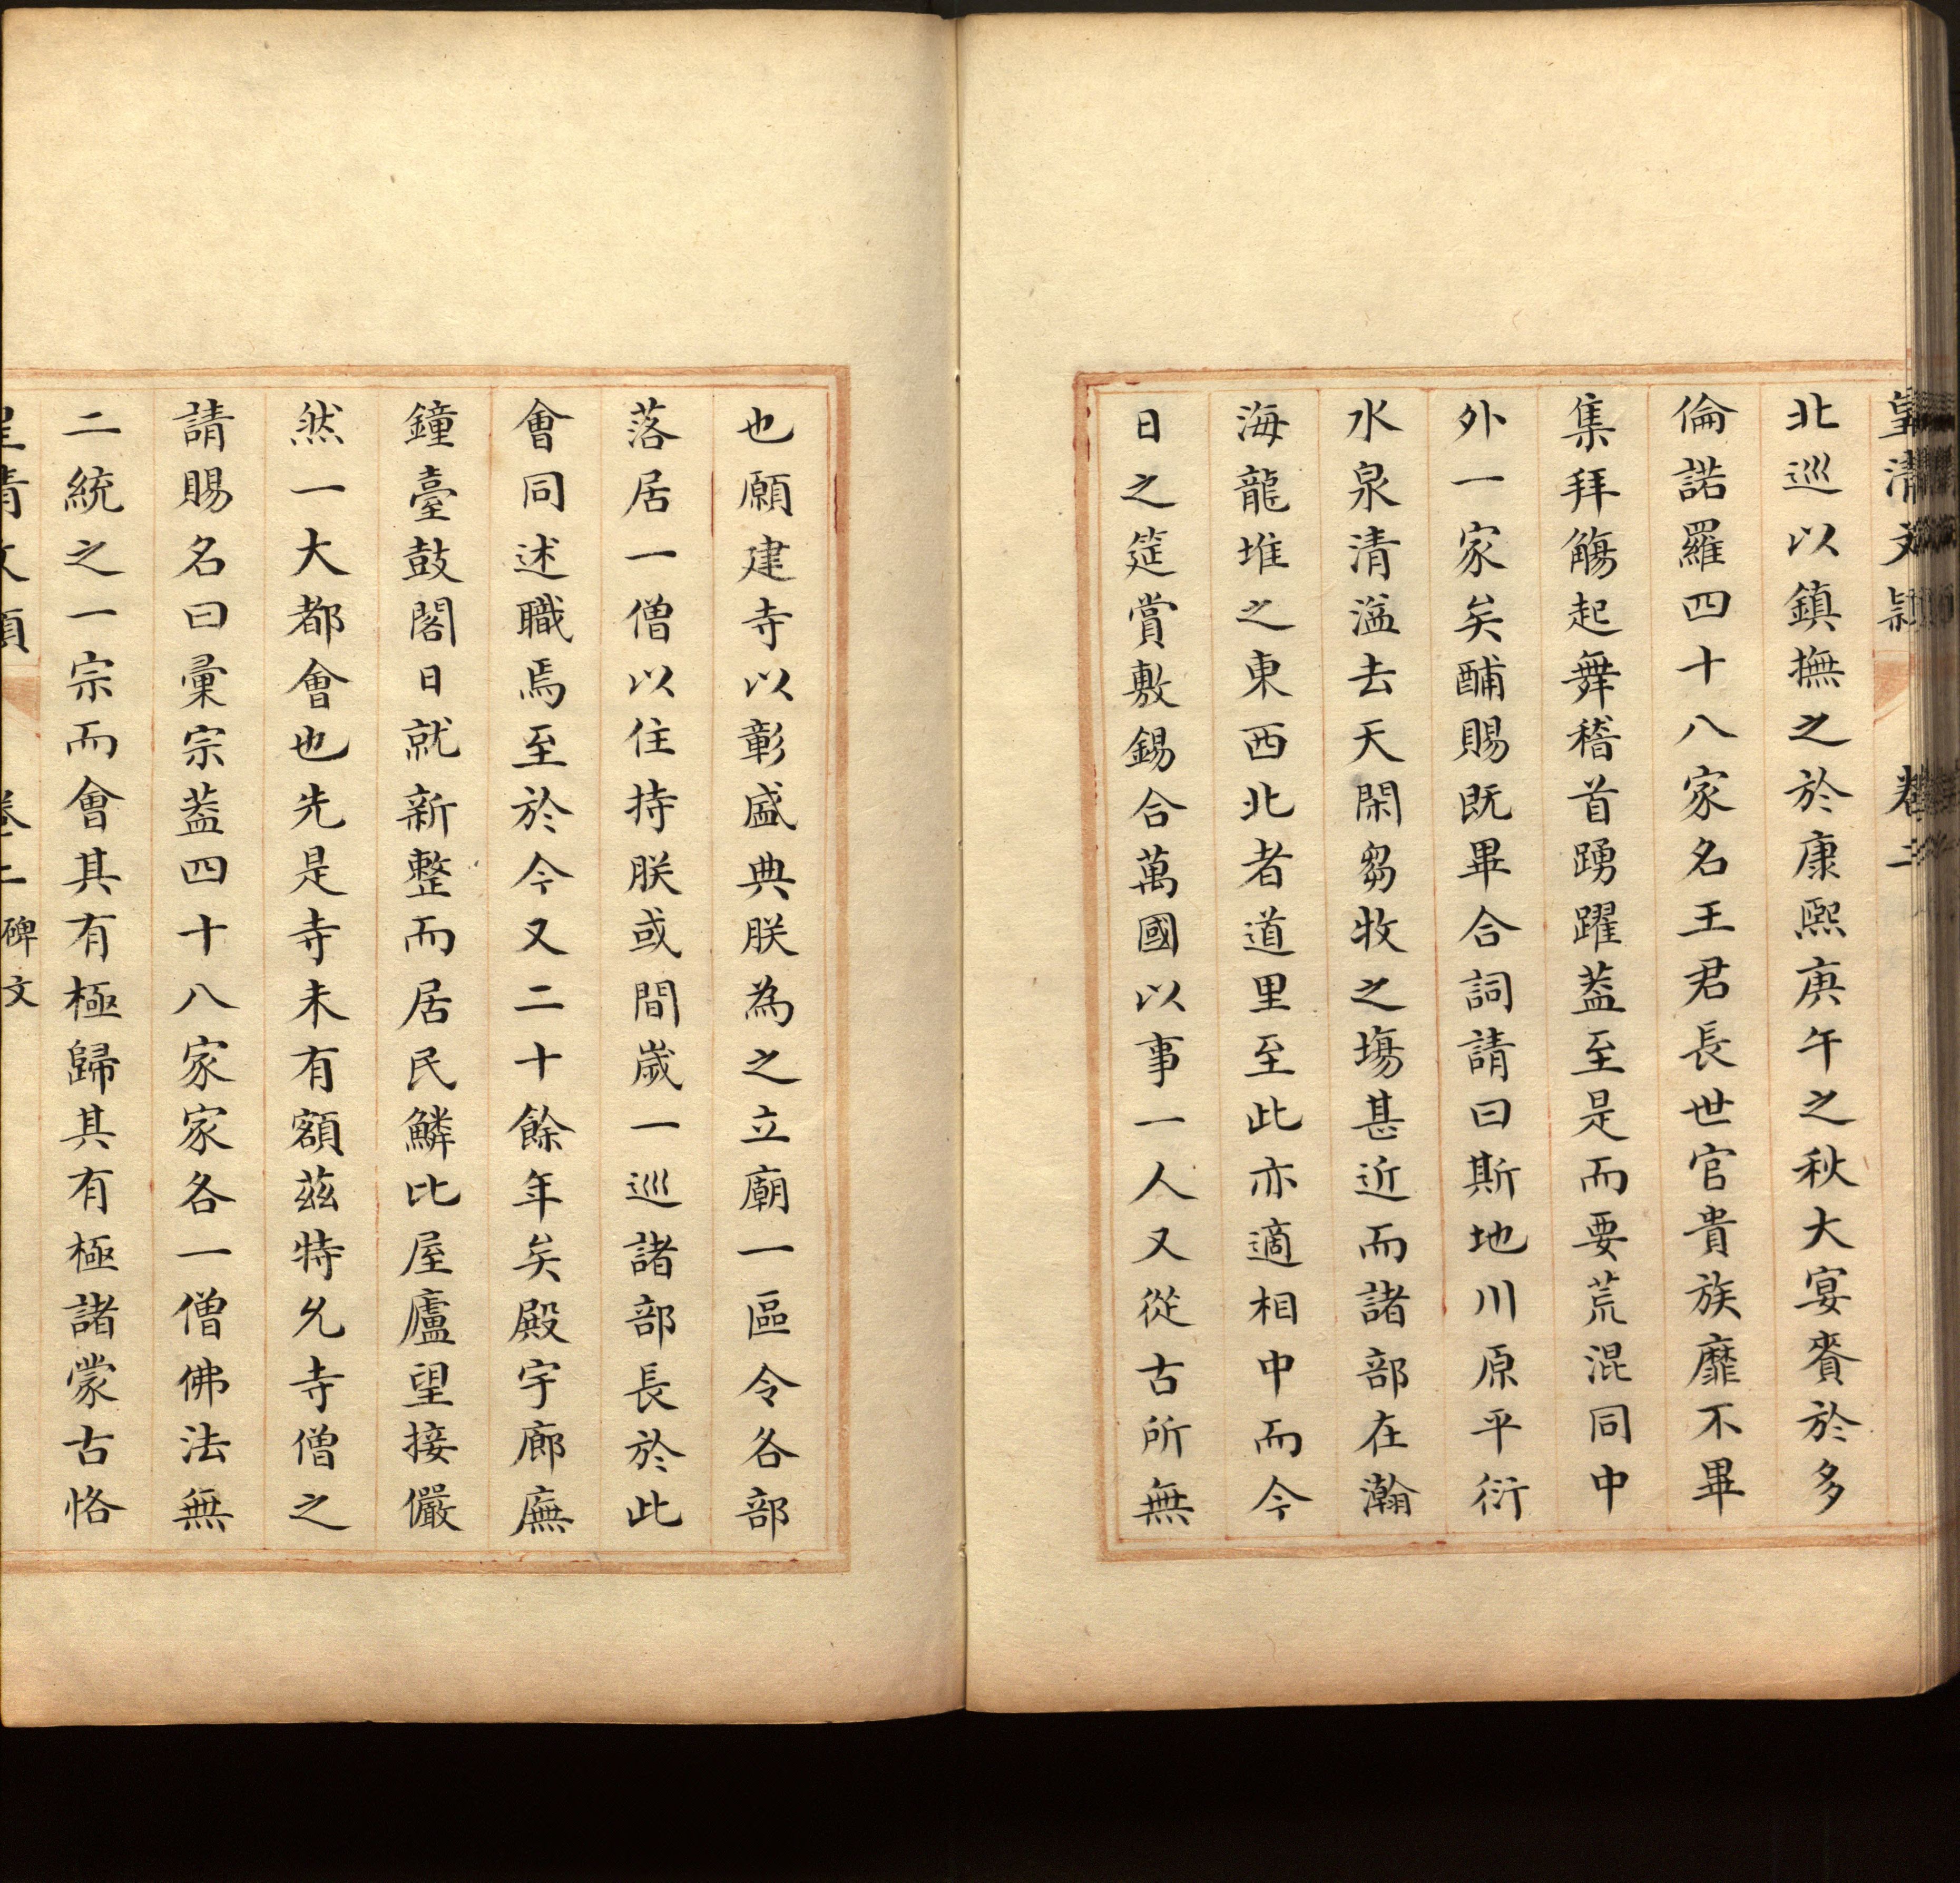 皇清文穎 卷二
北巡以鎮撫之於康熙庚午之秋大宴賚於多
倫諾羅四十八家名王君長世官貴族靡不畢
集拜觴起舞稽首踴躍葢至是而要荒混同中
外一家矣酺賜既畢合詞請曰斯地川原平衍
水泉清溢去天閑芻牧之場甚近而諸部在瀚
海龍堆之東西北者道里至此亦適相中而今
日之筵賞敷錫合萬國以事一人又從古所無
也願建寺以彰盛典朕為之立廟一區令各部
落居一僧以住持朕或間歲一巡諸部長於此
會同述職焉至於今又二十餘年矣殿宇廊廡
鐘臺鼓閣日就新整而居民鱗比屋廬望接儼
然一大都會也先是寺未有額茲特允寺僧之
請賜名曰彙宗葢四十八家家各一僧佛法無
二統之一宗而會其有極歸其有極諸蒙古恪
皇清文穎 卷二 碑文